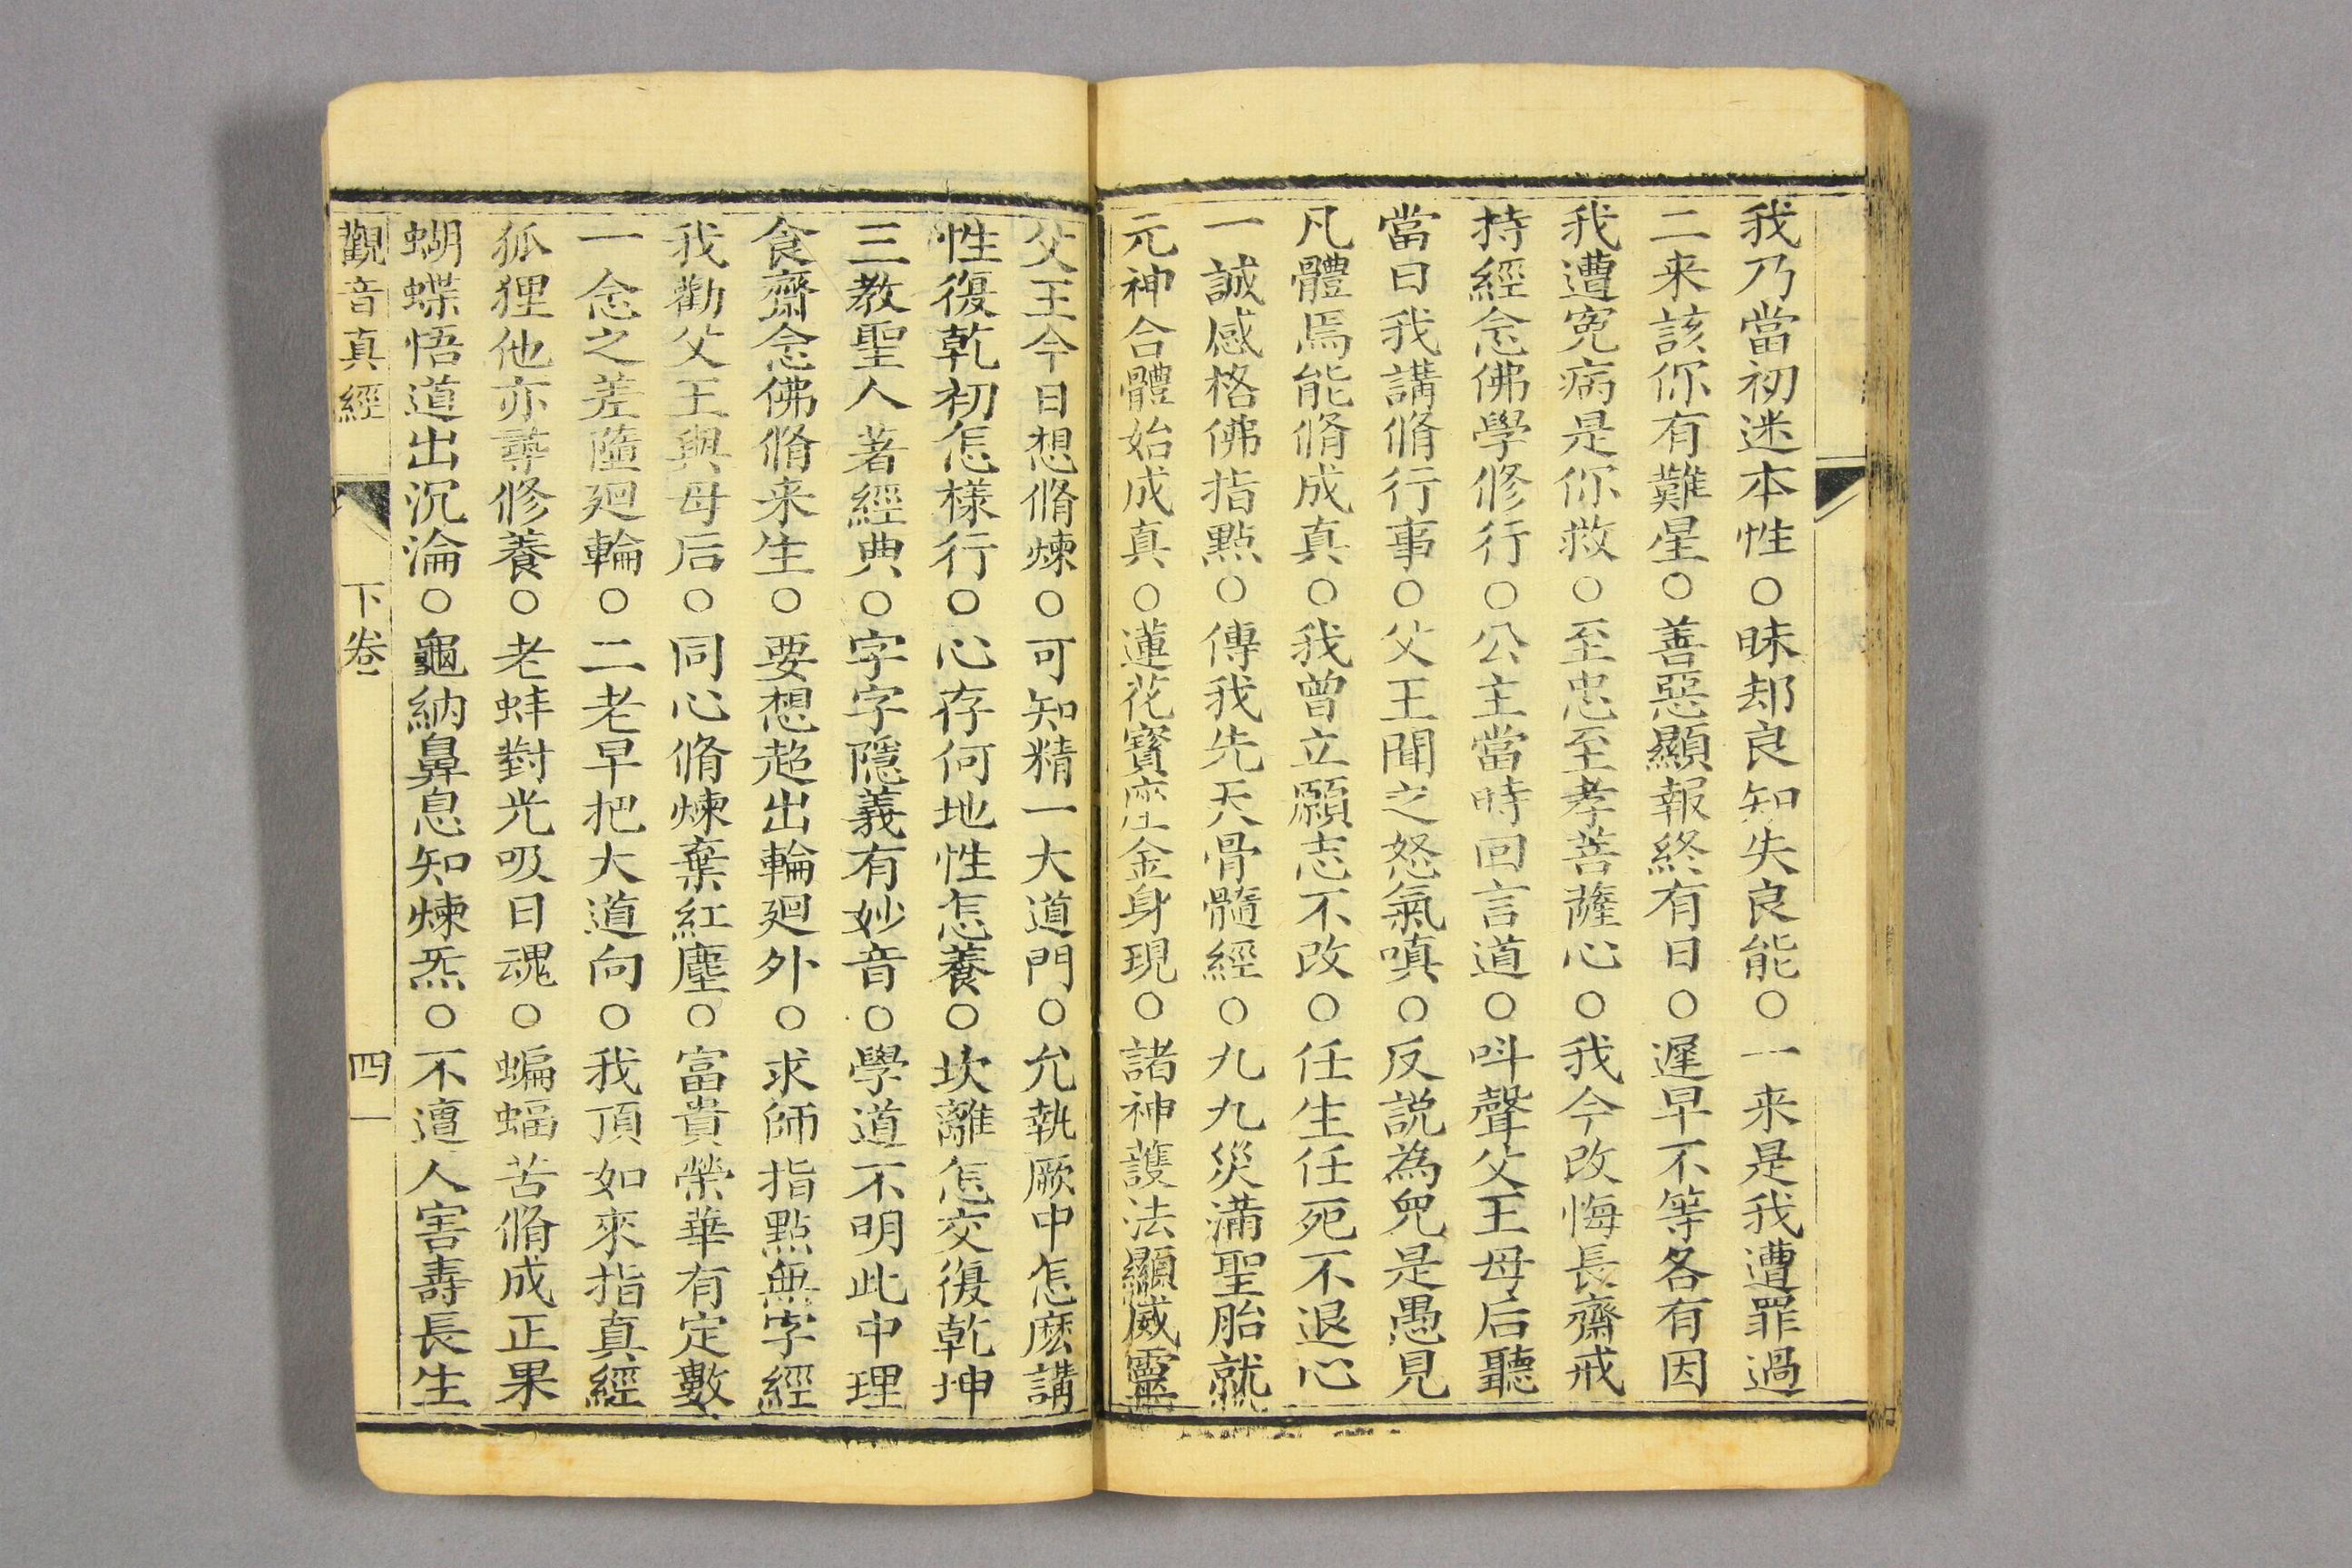 我乃當初迷本性○昧却良知失良能○一来是我遭罪過
二来該你有難星○善惡顯報終有日○遲早不等各有因
我遭寃病是你救○至忠至孝菩薩心○我今改悔長齋戒
持經念佛學修行○公主當時回言道○呌聲父王母后聽
當日我講脩行事○父王聞之怒氣嗔○反説為兒是愚見
凡體焉能脩成真○我曾立願志不改○任生任死不退心
一誠感格佛指點○傳我先天骨髓經○九九災滿聖胎就
元神合體始成真○蓮花寳座金身現○諸神護法顯威靈
父王今日想脩煉○可知精一大道門○允執厥中怎庅講
性復乾初怎樣行○心存何地性怎養○坎離怎交復乾坤
三教聖人著經典○字字隱義有妙音○學道不明此中理
食齋念佛脩来生○要想超出輪廻外○求師指點無字經
我勸父王與母后○同心脩煉棄紅塵○富貴榮華有定數
一念之差墮廻輪○二老早把大道向○我頂如來指真經
狐狸他亦尋修養○老蚌對光吸日魂○蝙蝠苦脩成正果
蝴蝶悟道出沉淪○龜納鼻息知煉炁○不遭人害壽長生
觀音真經 下卷 四一